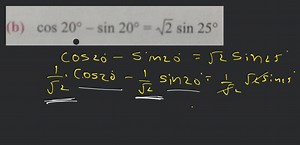 (b) cos 20° − sin 20° = √2 sin 25°
cos20° − sin20° = √2 sin25°
1/√2 · cos20° − 1/√2 sin20° = 1/√2 √2 sin25°